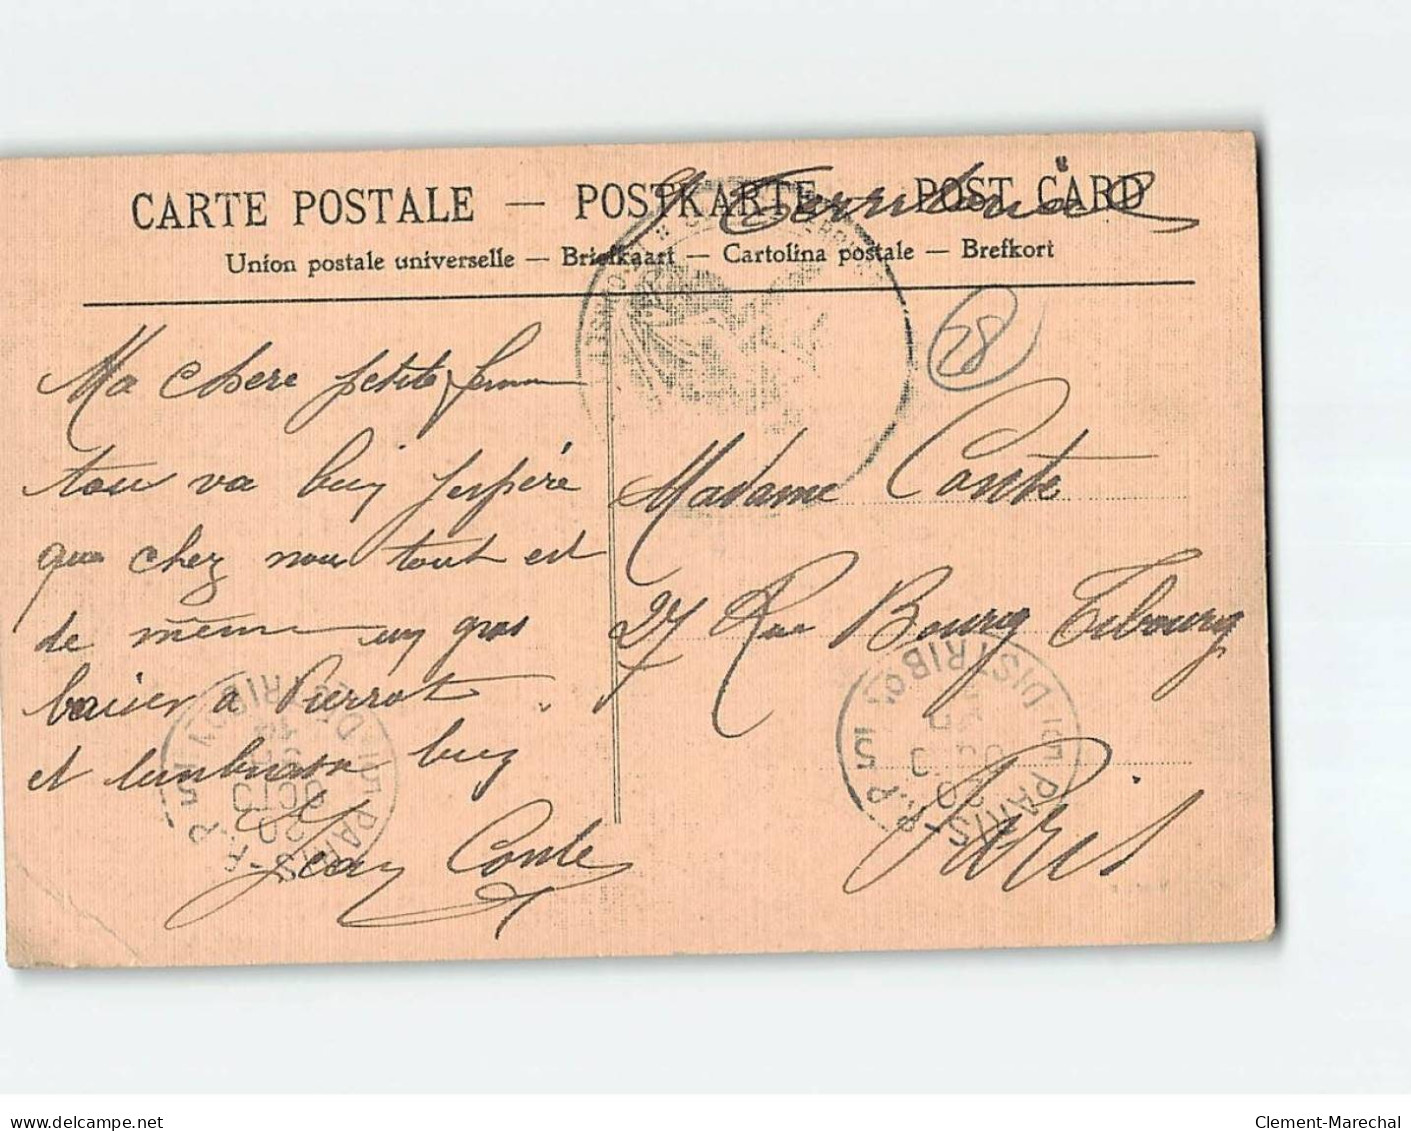 CARTE POSTALE — POSTKARTE — POST CARD
Territorial
Union postale universelle — Briefkaart — Cartolina postale — Brefkort
28
Ma chere petite femme
tou va bien j'espère
que chez nous tout est
de même un gros
baiser a Pierrot
et
Jean Conte
Madame Conte
27 Rue Bourg Tibourg
Paris
PARIS
DISTRIBON
20
OCT
5
PARIS
DISTRIBON
20
5
delcampe.net
Clement-Marechal